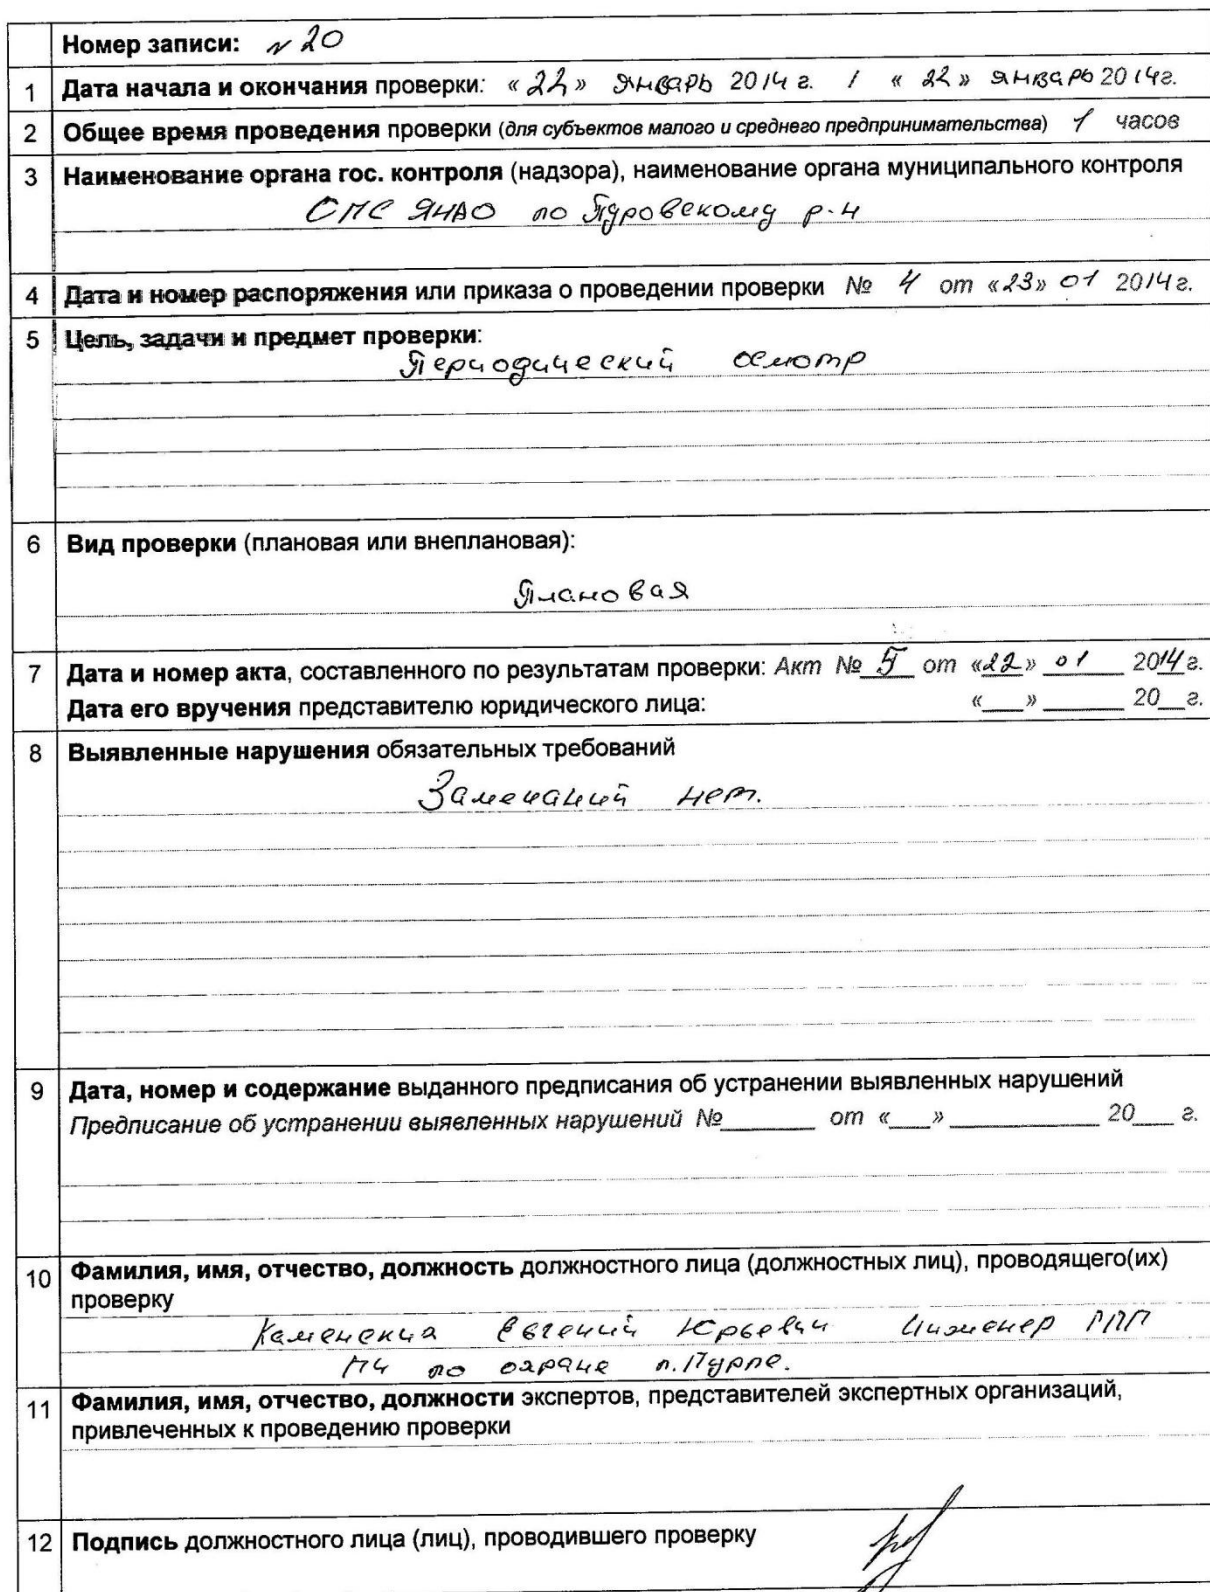 Номер записи: № 20
1 Дата начала и окончания проверки: «22» январь 2014 г. / «22» январь 2014г.
2 Общее время проведения проверки (для субъектов малого и среднего предпринимательства) 1 часов
3 Наименование органа гос. контроля (надзора), наименование органа муниципального контроля
ОПС ЯНАО по Пуровскому р-н
4 Дата и номер распоряжения или приказа о проведении проверки № 4 от «23» 01 2014г.
5 Цель, задачи и предмет проверки:
Периодический осмотр
6 Вид проверки (плановая или внеплановая):
Плановая
7 Дата и номер акта, составленного по результатам проверки: Акт № 5 от «22» 01 2014г.
Дата его вручения представителю юридического лица: «___» ______ 20__г.
8 Выявленные нарушения обязательных требований
Замечаний нет.
9 Дата, номер и содержание выданного предписания об устранении выявленных нарушений
Предписание об устранении выявленных нарушений №_______ от «___» ___________ 20___ г.
10 Фамилия, имя, отчество, должность должностного лица (должностных лиц), проводящего(их)
проверку
Евгений Юрьевич Инженер ГПП
ПЧ по охране п. Пурпе.
11 Фамилия, имя, отчество, должности экспертов, представителей экспертных организаций,
привлеченных к проведению проверки
12 Подпись должностного лица (лиц), проводившего проверку